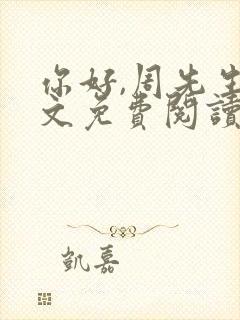 你好,周先生
文免費閱讀
凱嘉